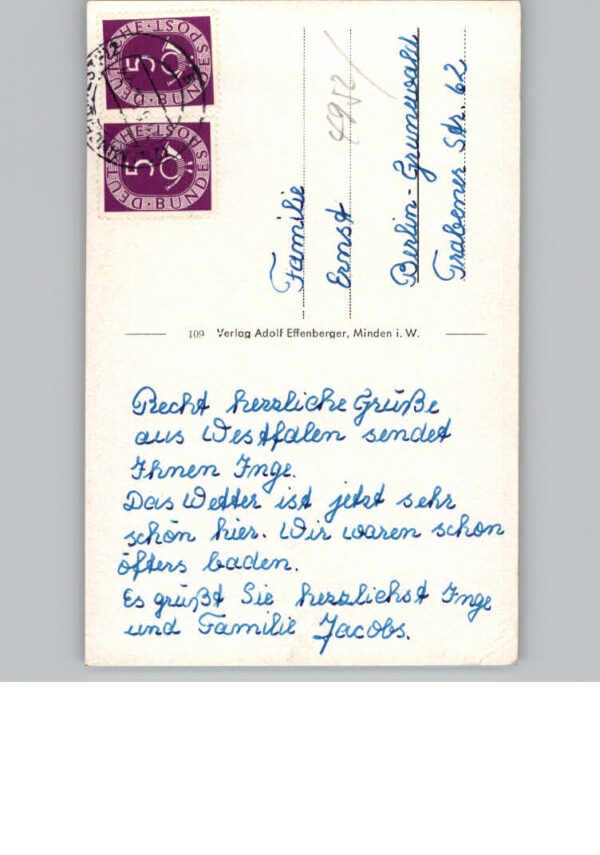 DEUTSCHE BUNDESPOST
5
DEUTSCHE BUNDESPOST
5
Familie
Ernst
Berlin-Grunwald
Trabener Str. 62
1952
109 Verlag Adolf Effenberger, Minden i. W.
Recht herzliche Grüße
aus Westfalen sendet
Ihnen Inge.
Das Wetter ist jetzt sehr
schön hier. Wir waren schon
öfters baden.
Es grüßt Sie herzlichst Inge
und Familie Jacobs.